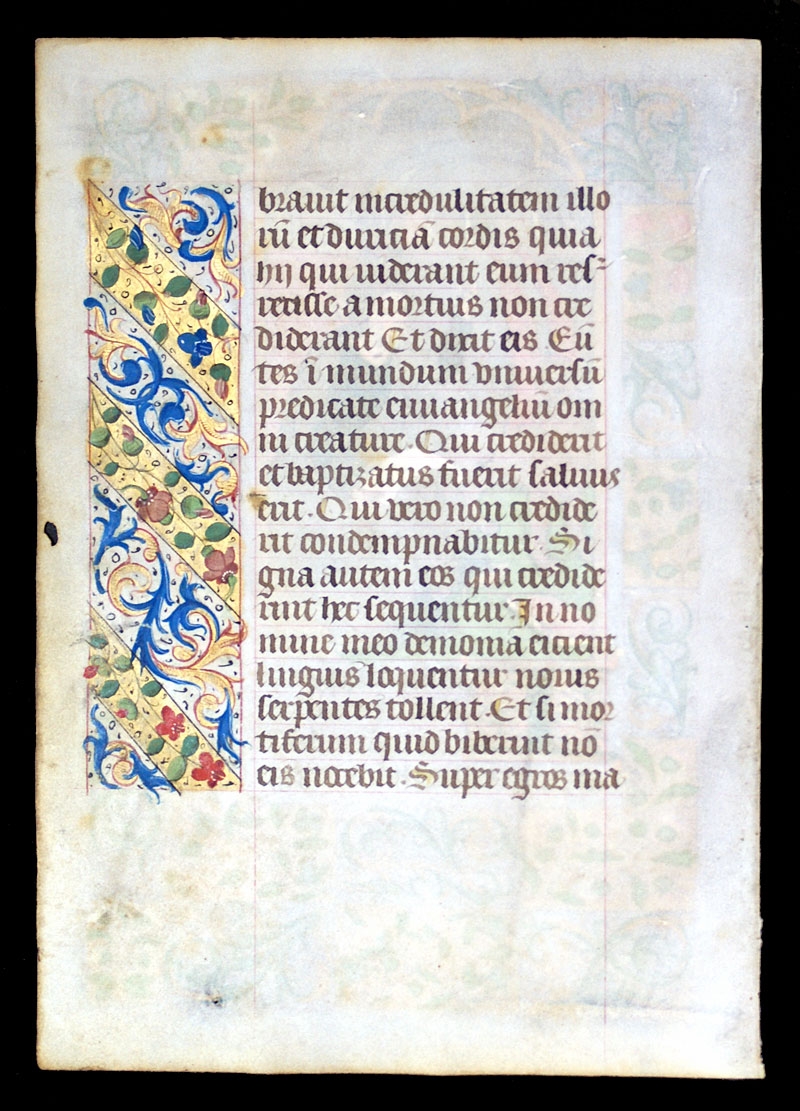 brauit incredulitatem illo
rū et duriciā cordis quia
hij qui uiderant eum res-
rexisse a mortuis non cre
diderant Et dixit eis Eū
tes ī mundum vniuersū
predicate euuangeliū om
ni creature. Qui crediderit
et baptizatus fuerit saluus
erit. Qui vero non credide
rit condempnabitur. Si
gna autem eos qui credide
rint hec sequentur. In no
mine meo demonia eicient
linguis loquentur nouis
serpentes tollent. Et si mor
tiferum quid biberint nō
eis nocebit. Super egros ma